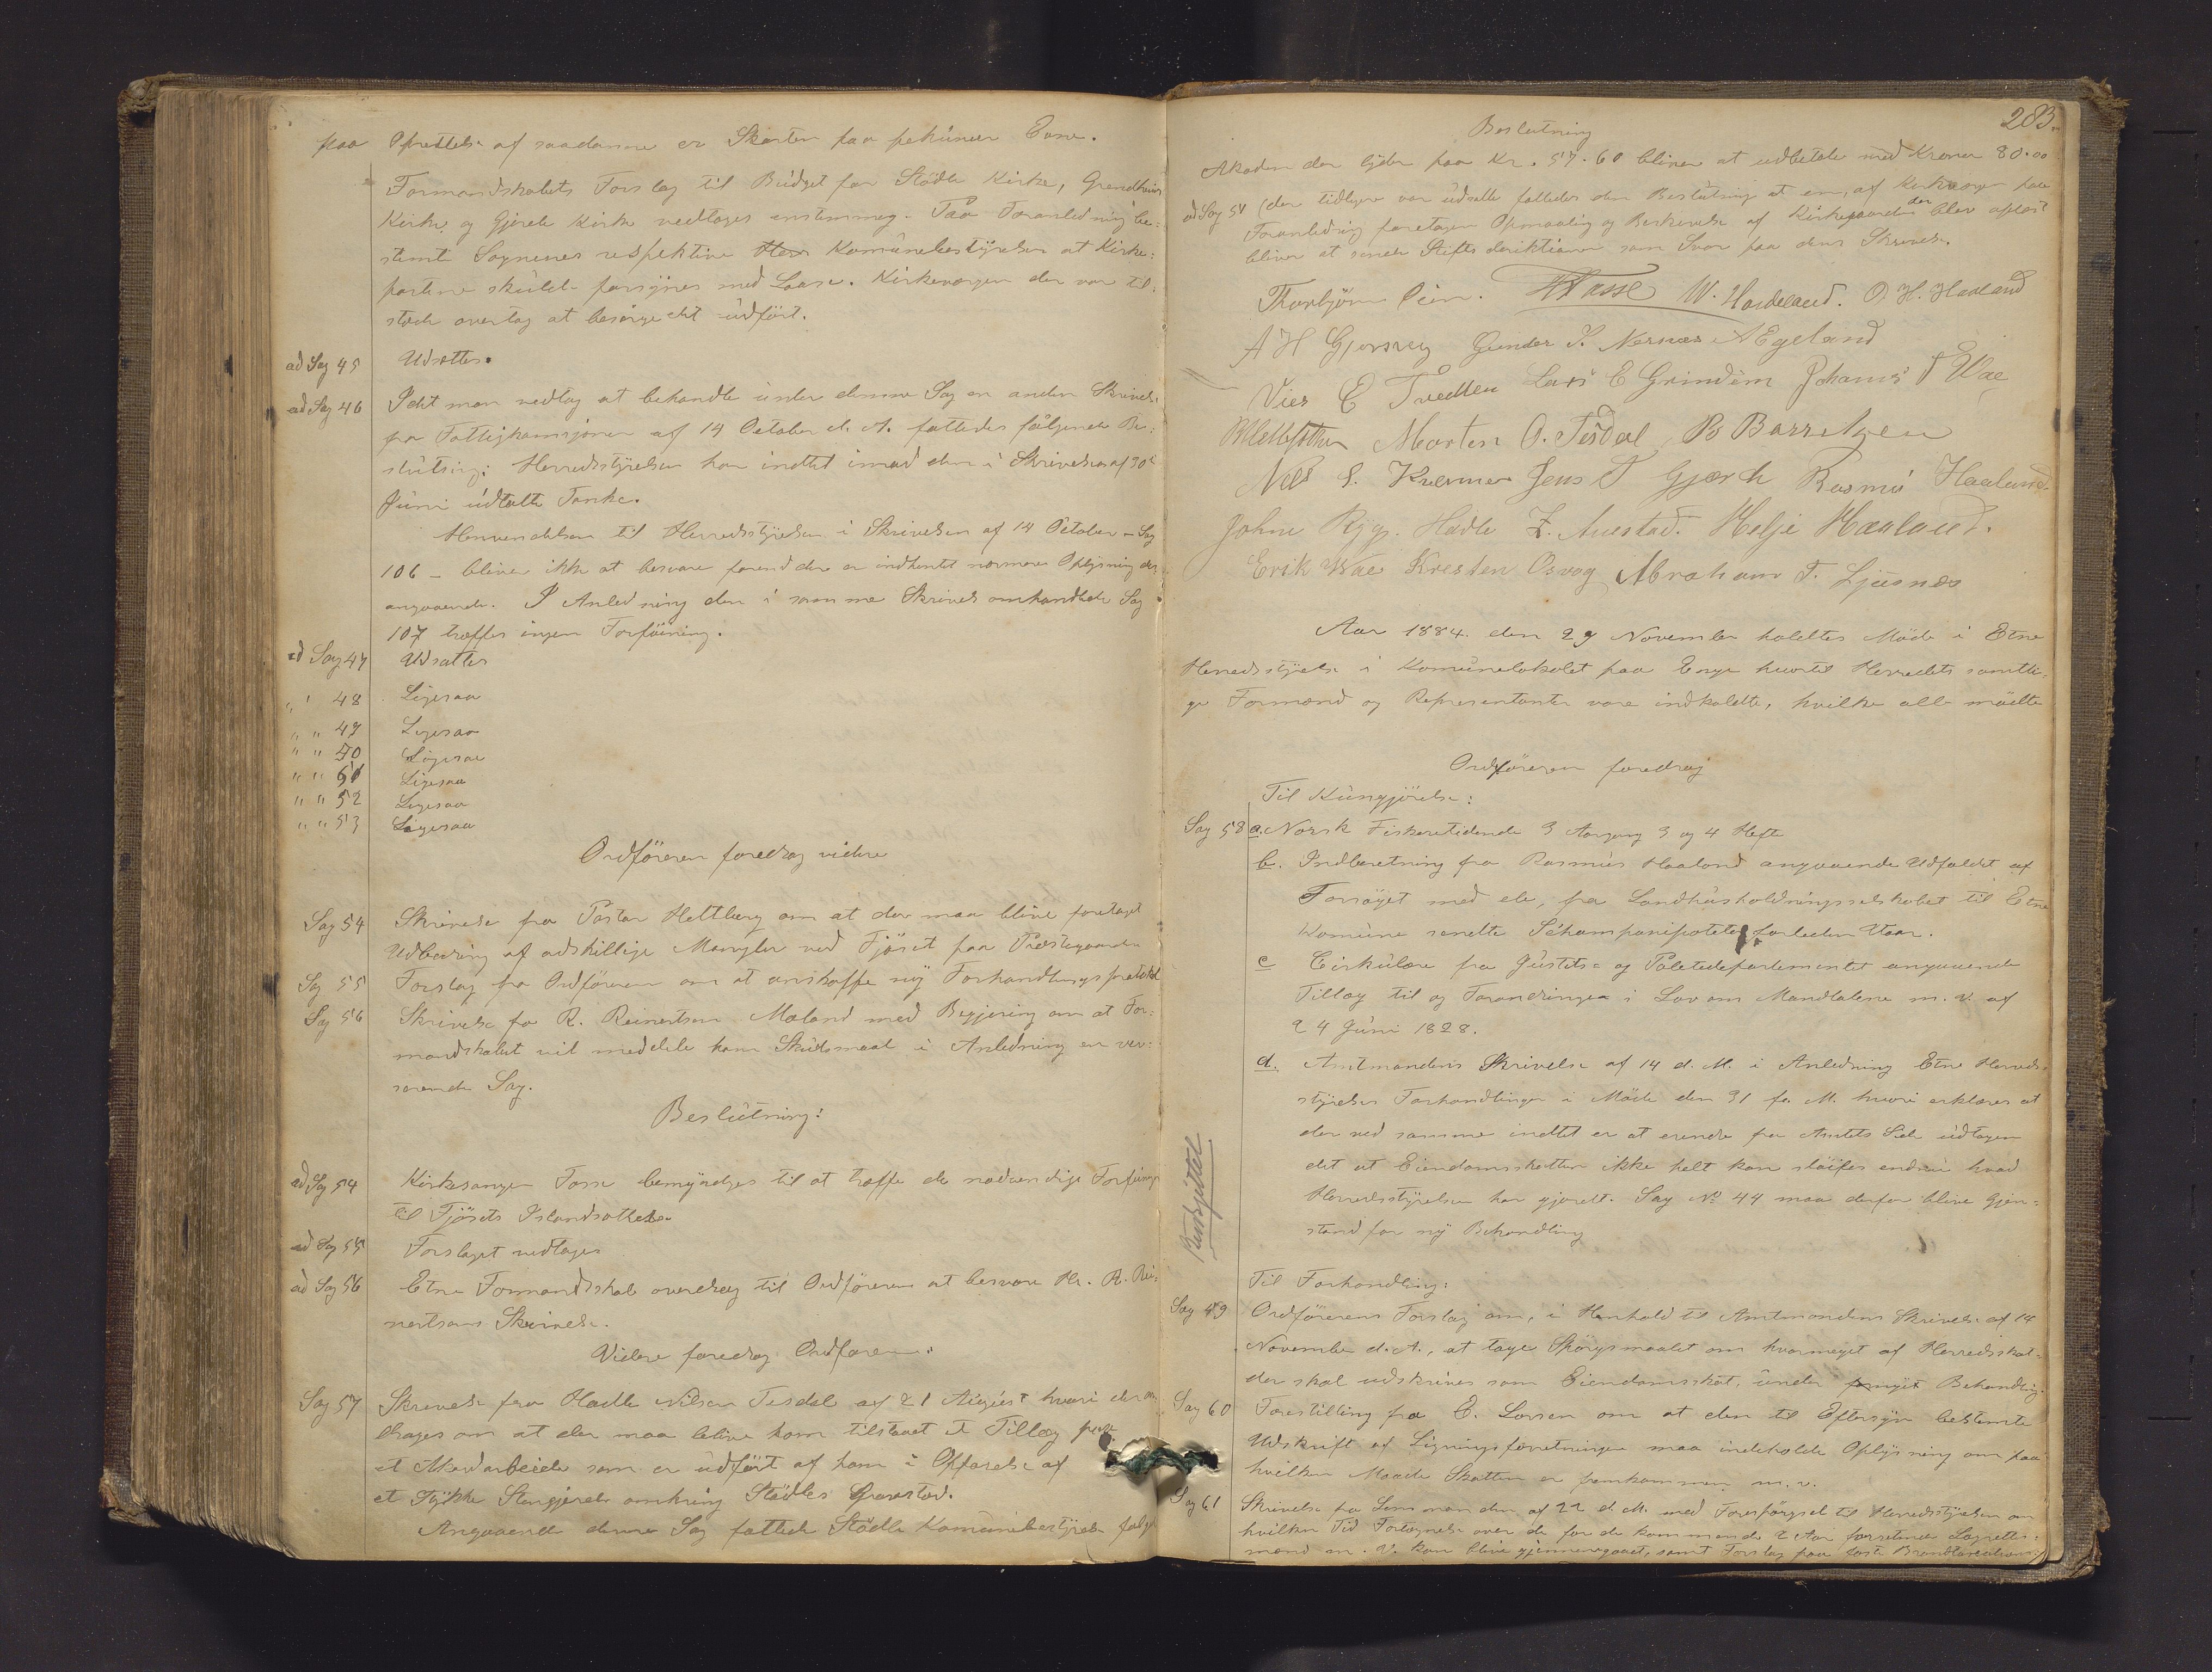 paa Oprettelse af saadanne er Skatten paa
Formandskabets Forslag til Budget for Stödle Kirke, Grindheim
Kirke og Gjerde Kirke vedtages enstemmig. Paa Foranledning be-
stemte Sognenes respektive Komünebestÿrelser at Kirke-
portene skülde forsÿnes med Laase. Kirkeværgen der var til-
stede overtog at besörge det udfört.
ad Sag 45 Udsættes.
ad Sag 46 Idet man vedtog at behandle ünder denne Sag en anden Skrivelse
fra Fattigkomisjonen af 14 October d. A. fattedes fölgende Be-
slütning: Herredsstÿrelsen har indtet imod den i Skrivelsen af 30te
Jüni üdtalte Tanke.
Henvendelsen til Herredsstÿrelsen i Skrivelsen af 14 October - Sag
106 - bliver ikke at besvare forend der er indhentet nærmere Oplÿsning der
angaaende. I Anledning den i samme Skrivelse omhandlede Sag
107 træffes ingen Forföining.
ad Sag 47 Udsættes
" " 48 Ligesaa
" " 49 Ligesaa
" " 50 Ligesaa
" " 51 Ligesaa
" " 52 Ligesaa
" " 53 Ligesaa
Ordföreren foredrog videre
Sag 54 Skrivelse fra Pastor Hettberg om at der maa blive foretaget
Udbedring af adskillige Mangler ved Fjöset paa Præstegaarden
Sag 55 Forslag fra Ordföreren om at anskaffe nÿ Forhandlingsprotokol
Sag 56 Skrivelse fra R. Reinertsen Mæland med Begjering om at For-
mandskabet vil meddele ham Sküdsmaal i Anledning en ver-
serende Sag.
Beslütning:
ad Sag 54 Kirkesanger Fosse bemÿndiges til at træffe de nödvendige Forföininger
til Fjösets Istandsættelse
ad Sag 55 Forslaget vedtages
ad Sag 56 Etne Formandsskab overdrog til Ordföreren at besvare Hr. R. Rei-
nertsens Skrivelse.
Videre foredrog Ordföreren:
Sag 57 Skrivelse fra Hadle Nilsen Tesdal af 21 Aügüst hvori der an
drages om at der maa blive ham tilstaaet et Tillæg
et Akordarbeide som er üdfört af ham i Opförelse af
et Stÿkke Stengjerde omkring Stødles Gravsted.
Angaaende denne Sag fattede Stödle Komünebestÿrelse fölgende
283.
Beslutning
Akorden der lÿder paa Kr. 57.60 bliver at udbetale med Kroner 80.00
ad Sag 51 (der tidligere var üdsatte fattedes den Beslütning at en, af Kirkeværgen paa
Foranledning foretagen Opmaaling og Beskrivelse af Kirkegaarden der blev oplæst
bliver at sende Stiftsdirektionen som Svar paa dens Skrivelse.
Thorbjörn Öien. HFosse W. Hardeland. O. H. Haaland
A H Gjersvig Gunder T. Nernæs AEgeland
Vier E Tvedten Lars E Grindem Johanis T Wae
Morten O. Tesdal B Barretzen
Nils S. Kverner Jens T Gjærde Rasmüs Haaland.
Johne Rÿg. Hadle Z. Austad. Helje Haaland.
Erik Wae Kresten Osvog Abraham T. Ljüsnæs
Aar 1884. den 29 November holdtes Möde i Etne
Herredsstÿrelse i Komünelokalet paa Enge hvortil Herredets samtli-
ge Formænd og Repræsentanter vare indkaldte, hvilke alle mödte
Ordföreren foredrog
Til Küngjörelse:
Sag 58 a. Norsk Fiskeritidende 3 Aargang 3 og 4 Hefte
b. Indberetning fra Rasmüs Haaland angaaende Udfaldet af
Forsöget med de, fra Landhüsholdningsselskabet til Etne
Komüne sendte Schampanipoteter forleden Vaar.
c Cirkülære fra Jüstits- og Politidepartementet angaaende
Tillæg til og Forandringer i Lov om Mandtalene m. v. af
24 Jüni 1828.
d. Amtmandens Skrivelse af 14 d. M. i Anledning Etne Herreds-
stÿrelses Forhandlinger i Möde den 31 f. M. hvori erklæres at
der ved samme indtet er at erindre fra Amtets Side üdtagen
det at Eiendomsskatten ikke helt kan slöifes endsüi hvad
Herredsstÿrelsen har gjordt. Sag No 44 maa derfor blive Gjen-
stand for nÿ Behandling
Til Forhandling:
Sag 59 Ordförerens Forslag om, i Henhold til Amtmandens Skrivelse af 14
November d. A., at tage Spörgsmaalet om hvormeget af Herredsskat-
der skal udskrives som Eiendomsskat, ünder fornÿet Behandling.
Sag 60 Forestilling fra E. Larsen om at den til Eftersÿn bestemte
Udskrift af Ligningsforretningen maa indeholde Oplÿsning om paa
hvilken Maade Skatten er fremkommen m. v.
Sag 61 Skrivelse fra Lensmanden af 22 d. M. med Forespörgsel til Herredsstÿrelsen om
hvilken Tid Fortegnelse over de for de kommende 2 Aar forrettende Lagrettes-
mænd m. V. kan blive gjennemgaaet, samt Forslag paa